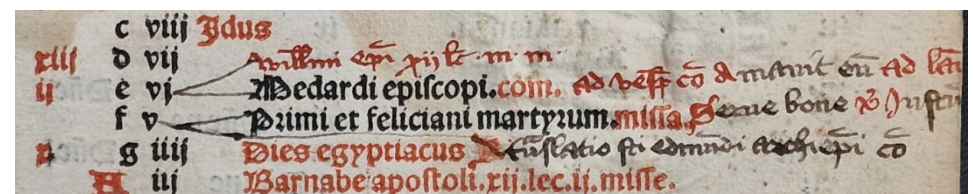 c viij Idus
xiij d vij willmi epi xij lc m m
ij e vj Medardi episcopi.com. ad vesp co Amavit eu ad
f v Primi et feliciani martyrum.missa. Serue bone
x g iiij Dies egyptiacus Translatio sci edmundi archiepi co
A iij Barnabe apostoli.xij.lec.ij.misse.